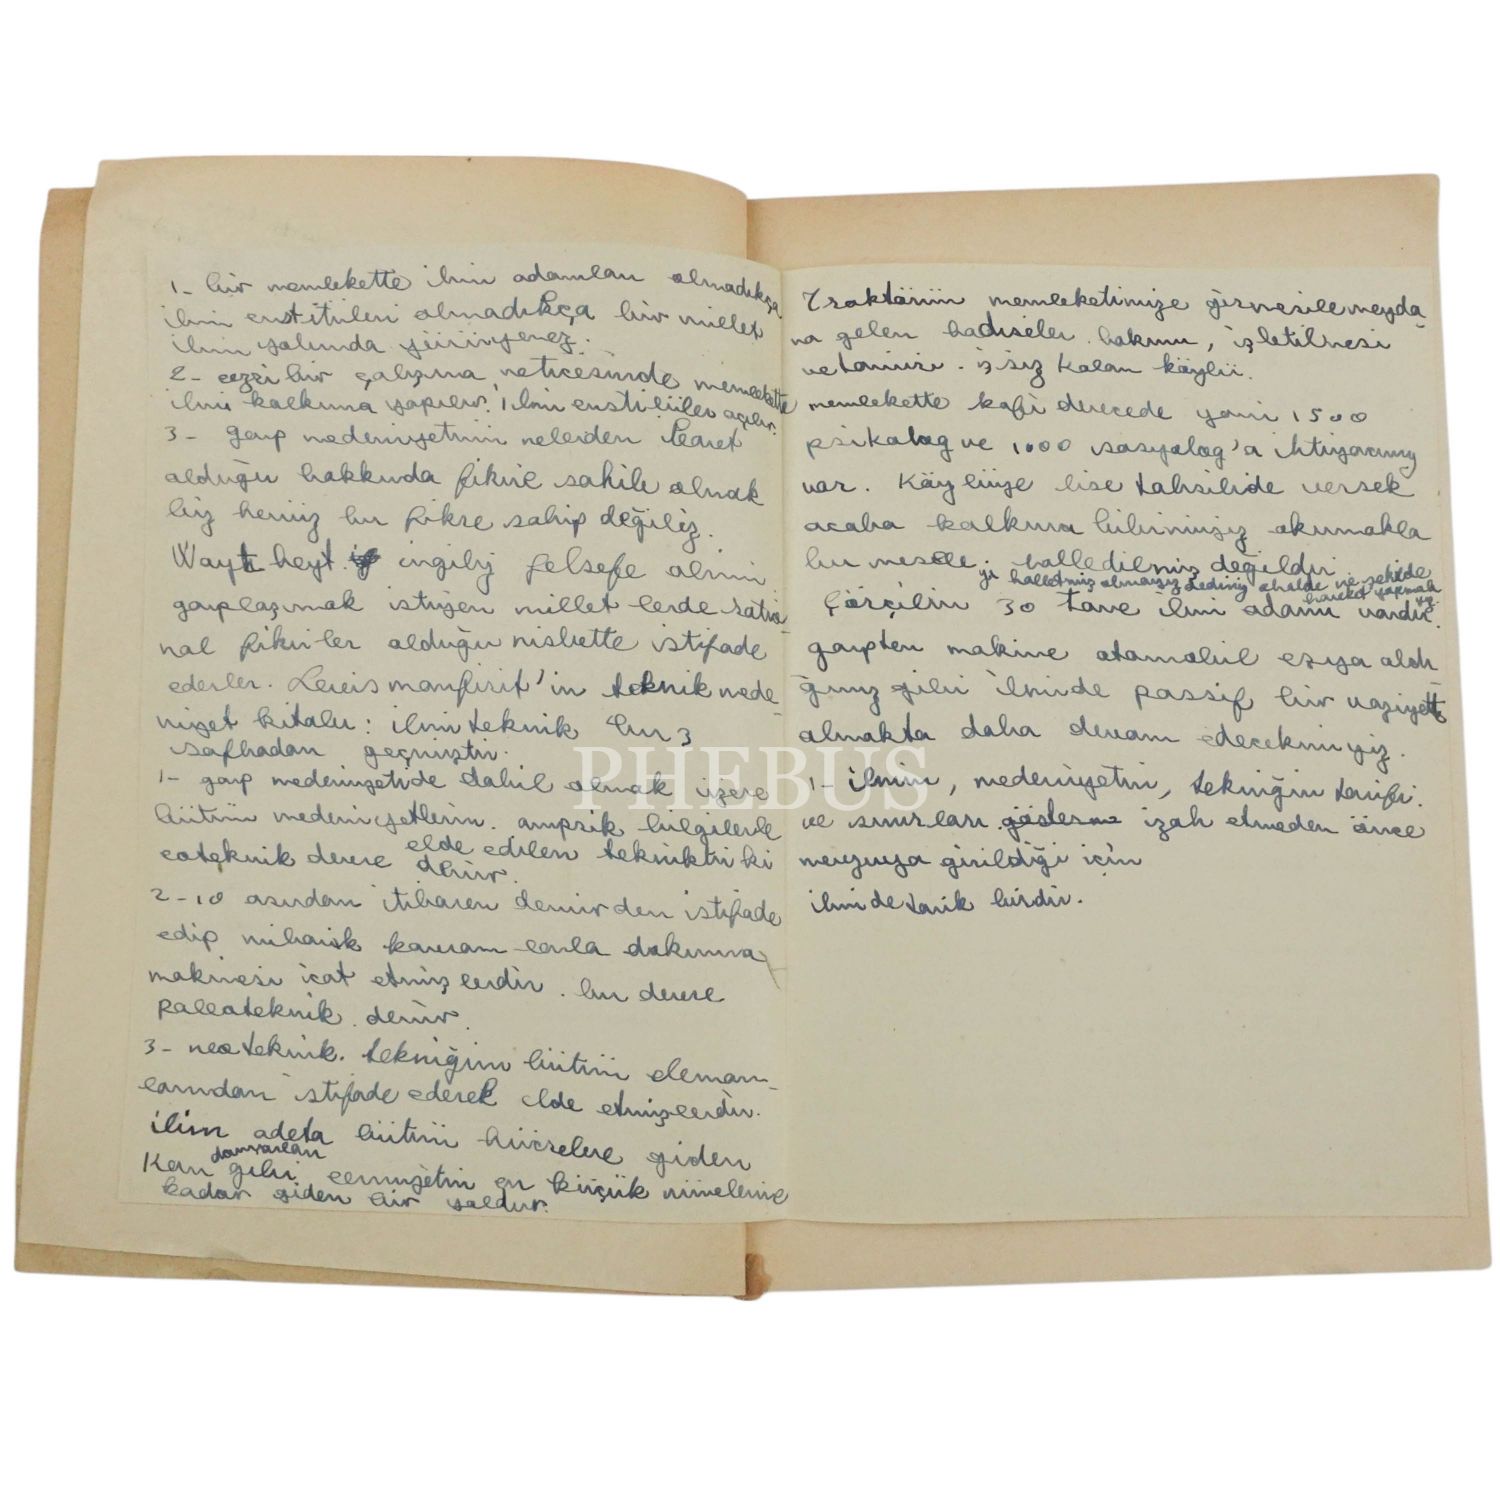 1- bir memlekette ilim adamları olmadıkça
ilim enstitüleri olmadıkça bir millet
ilim yolunda yürüyemez.
2- cezri bir çalışma neticesinde memlekette
ilmi kalkınma yapılır. ilmi enstitüler açılır.
3- garp medeniyetinin nelerden ibaret
olduğu hakkında fikire sahib olmak
biz henüz bu fikre sahip değiliz.
Wayt heyt ingiliz felsefe alimi
garplaşmak istiyen milletlerde ratio-
nal fikirler olduğu nisbette istifade
ederler. Lewis manfirit'in teknik mede-
niyet kitabı: ilmi teknik bu 3
safhadan geçmiştir.
1- garp medeniyetide dahil olmak üzere
bütün medeniyetlerin. amprik bilgilerle
elde edilen tekniktir ki
eoteknik devre denir.
2-10 asırdan itibaren demirden istifade
edip mihaisk kavramlarla dokuma
makinesi icat etmişlerdir. bu devre
paleoteknik denir.
3- neoteknik. tekniğin bütün eleman-
larından istifade ederek elde etmişlerdir.
ilim adeta bütün hücrelere giden
damarları
Kan gibi cemiyetin en küçük
kadar giden bir yoldur.
Traktörün memleketimize girmesile meyda-
na gelen hadiseler. bakımı, işletilmesi
ve tamiri. işsiz kalan köylü.
memlekette kafi derecede yani 1500
psikolog ve 1000 sosyolog'a ihtiyacımız
var. Köylüye lise tahsilide versek
acaba kalkınabilirmiyiz okumakla
bu mesele. halledilmiş değildir
yi halletmiş olmayız dediniz ohalde ne şekilde
hareket yapmalıyız
Çörçilin 30 tane ilim adamı vardır.
garpten makine otomobil eşya aldı
ğımız gibi ilmide passif bir vaziyette
almakta daha devam edecekmiyiz.
1- ilmin, medeniyetin, tekniğin tarifi.
ve sınırları gösterme izah etmeden önce
mevzuya girildiği için
ilmide tarik birdir.
PHEBUS